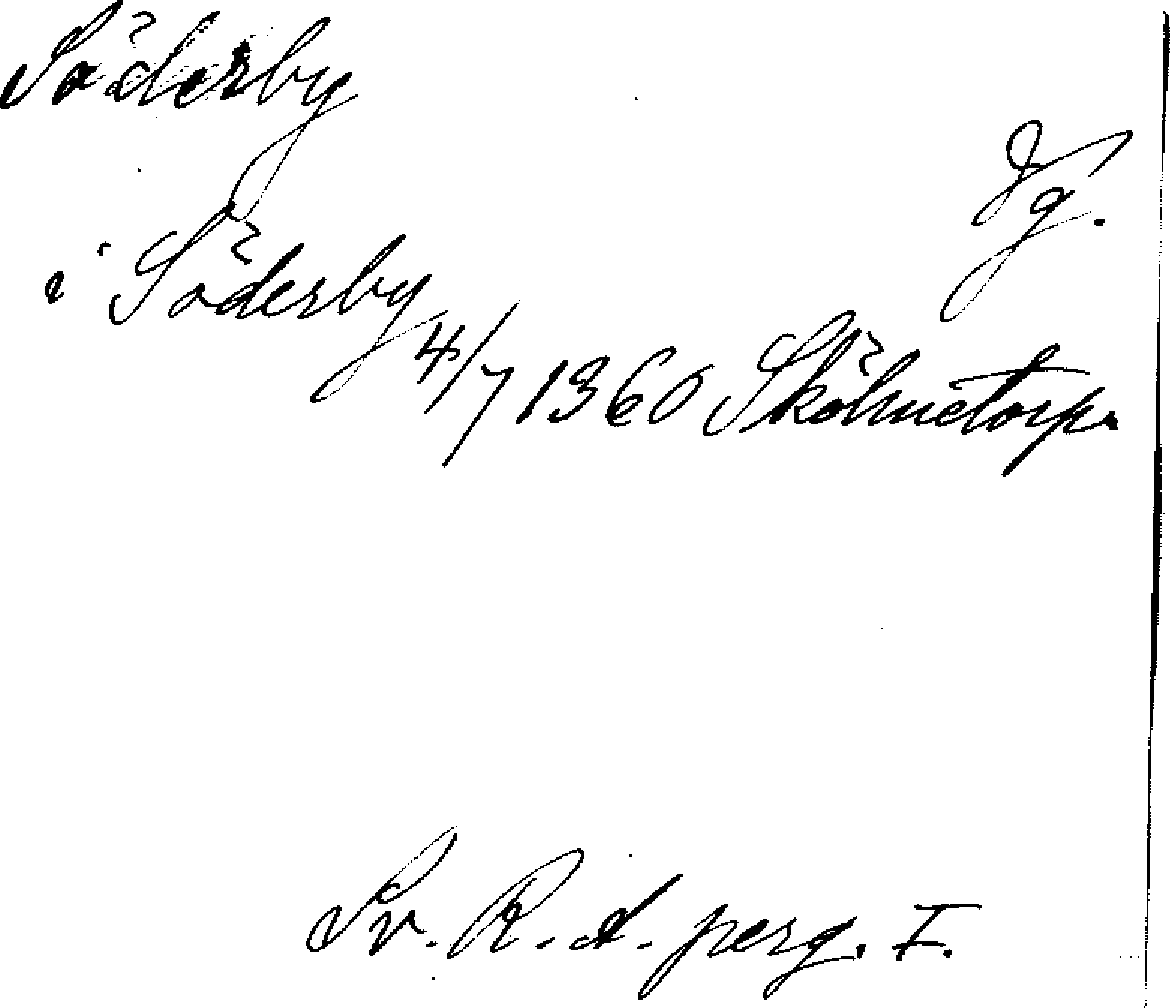 Söderby
Vg.
i Söderby 4/7 1360 Skölnetorp.
Sv. R. A. perg. I.